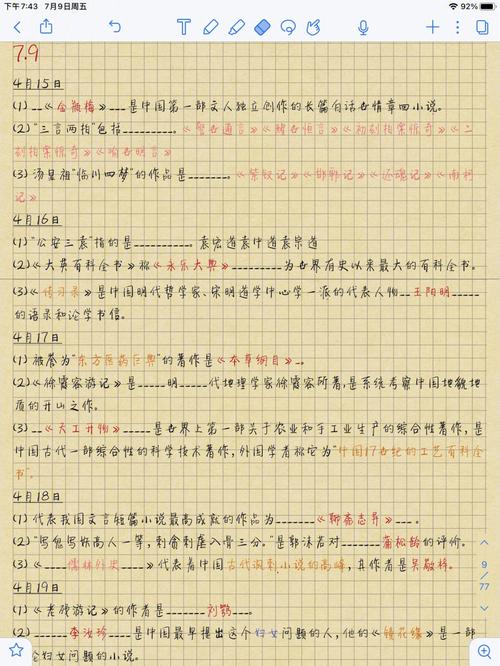 下午7:43 7月9日周五
92%
7.9
4月15日
(1)__《金瓶梅》___是中国第一部文人独立创作的长篇白话世情章回小说。
(2)"三言两拍"包括__________。《警世通言》《醒世恒言》《初刻拍案惊奇》《二
刻拍案惊奇》《喻世明言》
(3)汤显祖"临川四梦"的作品是________。《紫钗记》《邯郸记》《还魂记》《南柯
记》
4月16日
(1)"公安三袁"指的是__________。袁宏道袁中道袁宗道
(2)《大英百科全书》称《永乐大典》_________为世界有史以来最大的百科全书。
(3)《传习录》是中国明代哲学家、宋明道学中心学一派的代表人物__王阳明_____
的语录和论学书信。
4月17日
(1)被誉为"东方医药巨典"的著作是《本草纲目》_。
(2)《徐霞客游记》是_____明_____代地理学家徐霞客所著,是系统考察中国地貌地
质的开山之作。
(3)__《天工开物》_____是世界上第一部关于农业和手工业生产的综合性著作,是
中国古代一部综合性的科学技术著作,外国学者称它为"中国17世纪的工艺百科全
书"。
4月18日
(1)代表我国文言短篇小说最高成就的作品为_______《聊斋志异》___。
(2)"写鬼写妖高人一等,刺贪刺虐入骨三分。"是郭沫若对_______蒲松龄的评价。
(3)《___儒林外史____》代表着中国古代讽刺小说的高峰,其作者是吴敬梓。
4月19日
(1)《老残游记》的作者是_______刘鹗___。
(2)______李汝珍____是中国最早提出这个妇女问题的人,他的《镜花缘》是一部讨
论妇女问题的小说。
9
77